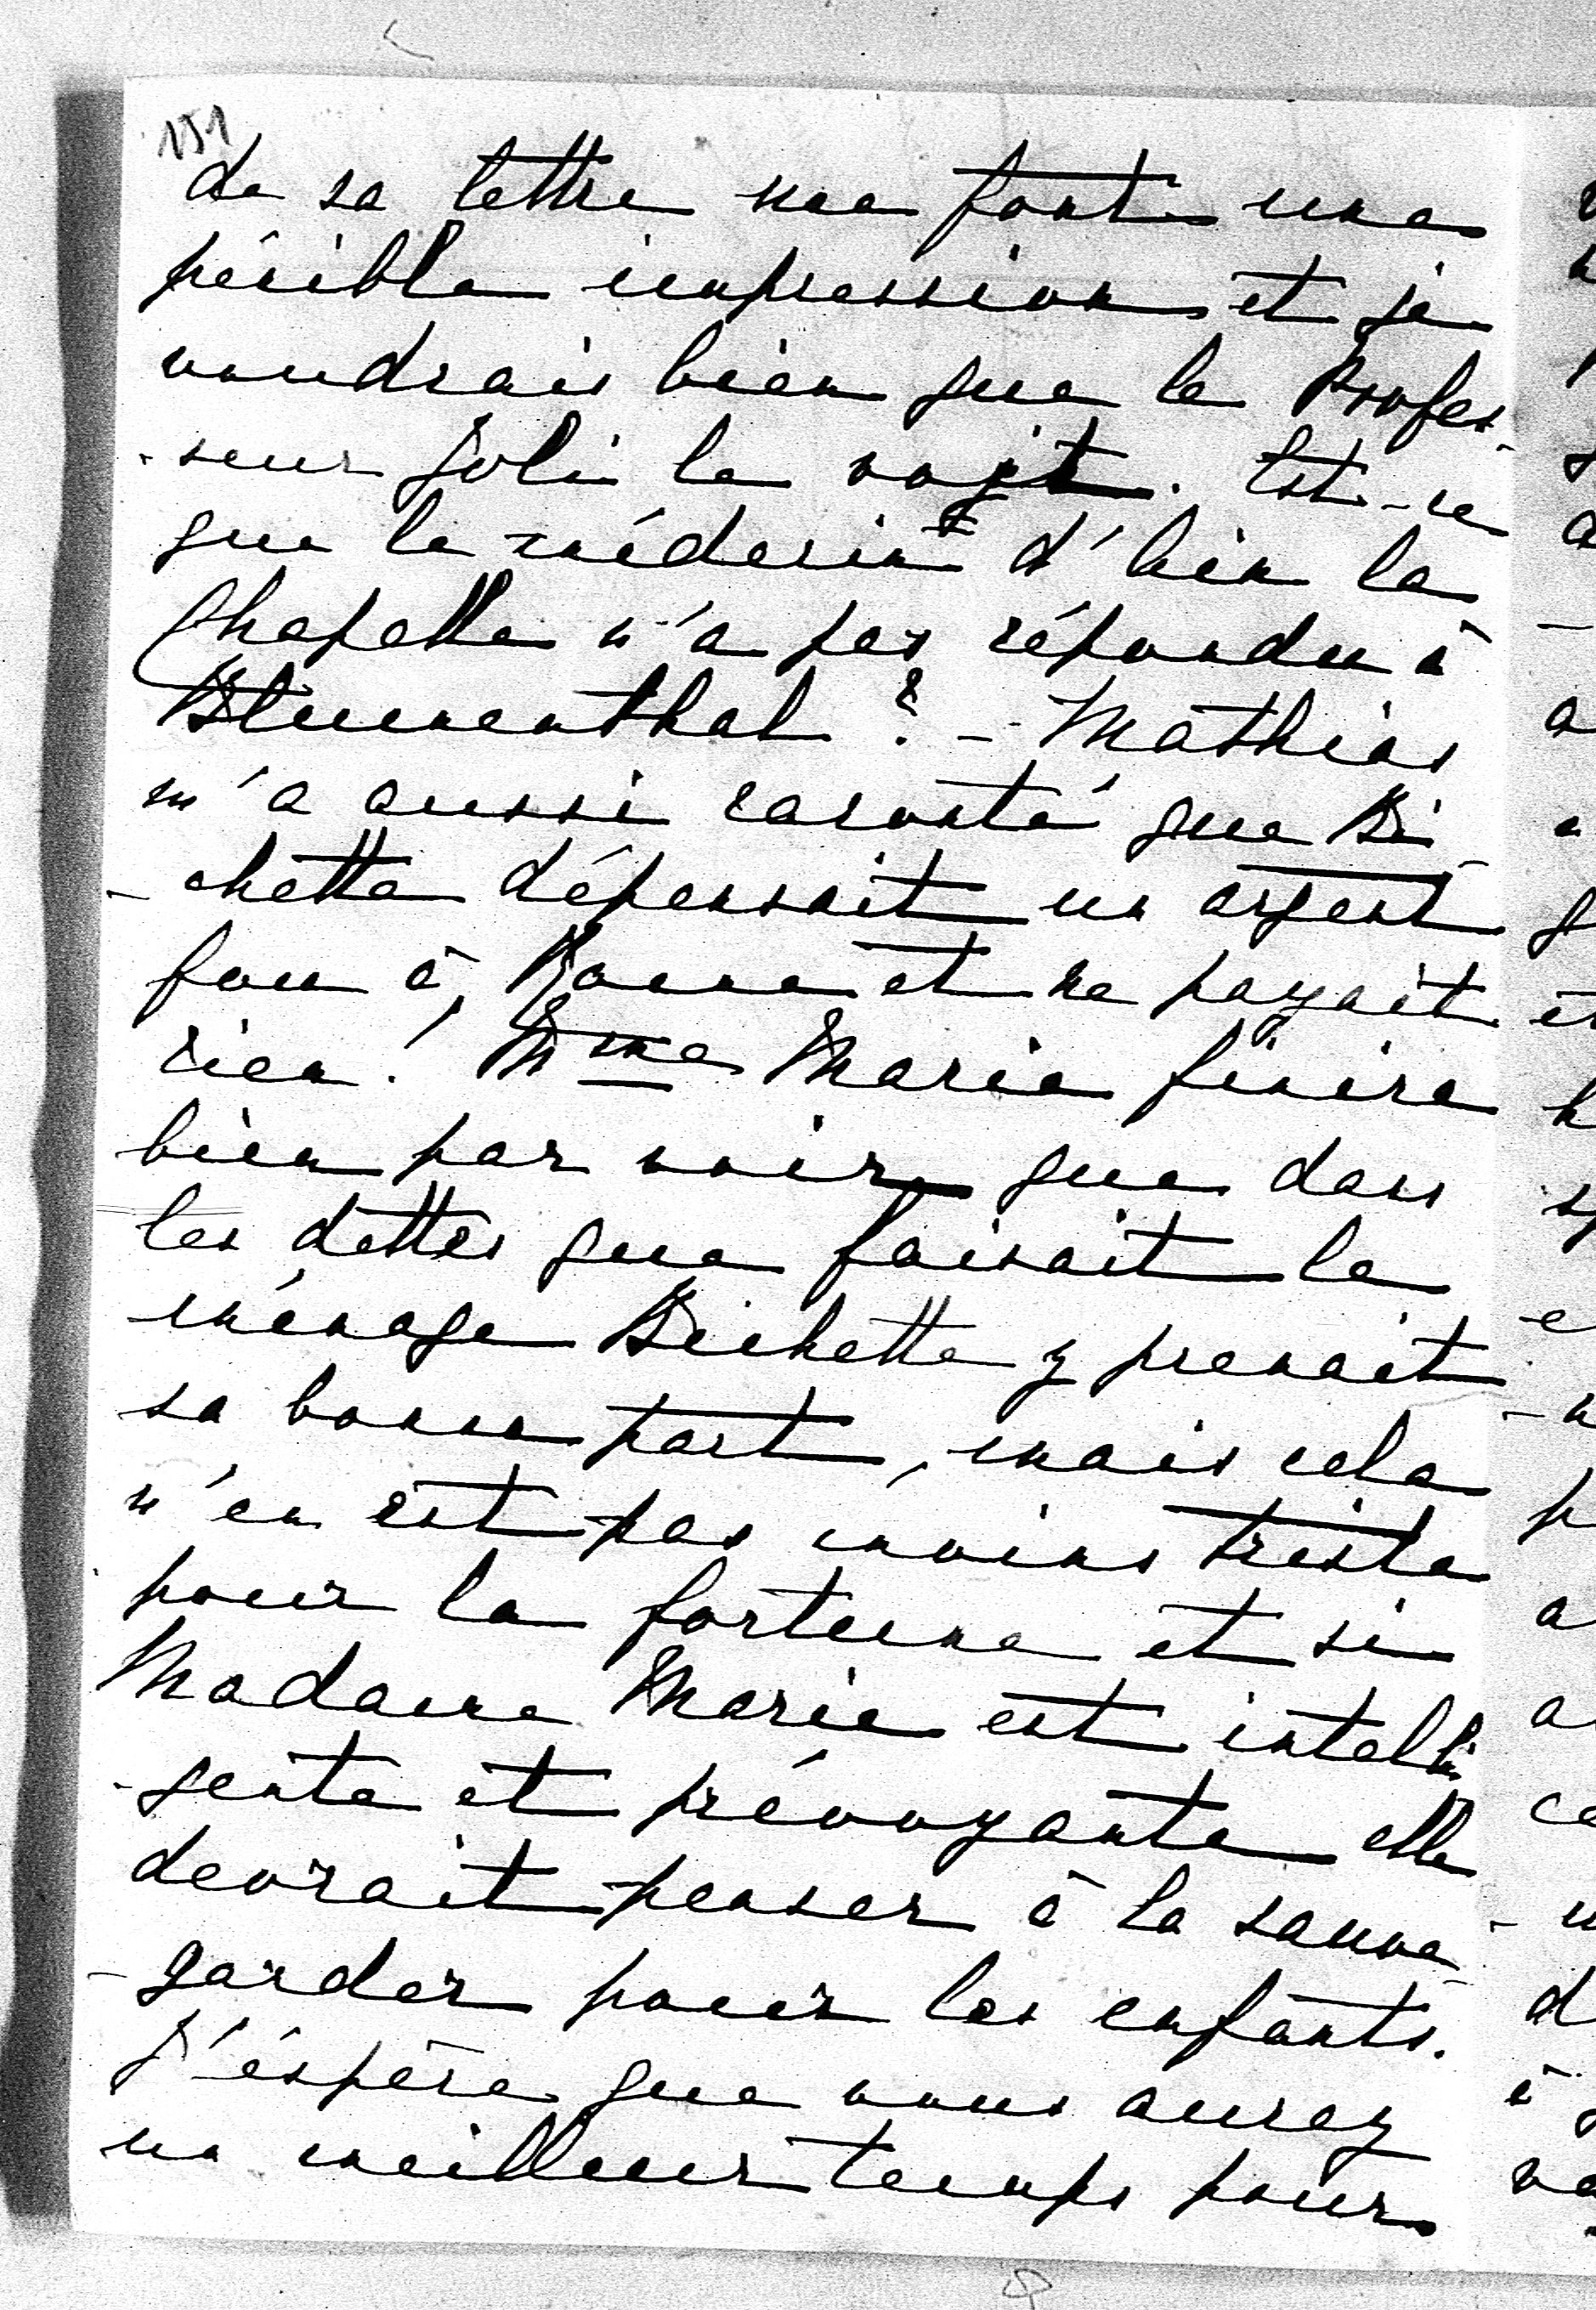 151
de sa lettre me font une
pénible impression et je
voudrais bien que le Profes-
-seur Joli la voyît. Est-ce
que le médecin d'Aix la
Chapelle n'a pas répondu à
Blumenthal ? - Mathias
m'a aussi raconté que Bi-
-chette dépensait un argent
fou à Rome et ne payait
rien ! Mme Marie finira
bien par voir que dans
les dettes que faisait le
ménage Bichette y prenait
sa bonne part, mais cela
n'en est pas moins triste
pour la fortune et si
Madame Marie est intelli-
-gente et prévoyante elle
devrait penser à la sauve-
-garder pour les enfants.
J'éspère que vous aurez
un meilleur temps pour